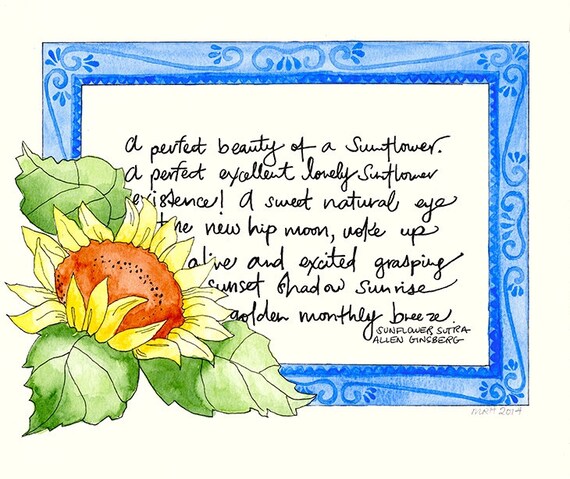 A perfect beauty of a Sunflower.
A perfect excellent lovely Sunflower
existence! A sweet natural eye
the new hip moon, woke up
alive and excited grasping
sunset shadow sunrise
golden monthly breeze.
SUNFLOWER SUTRA
ALLEN GINSBERG
2014